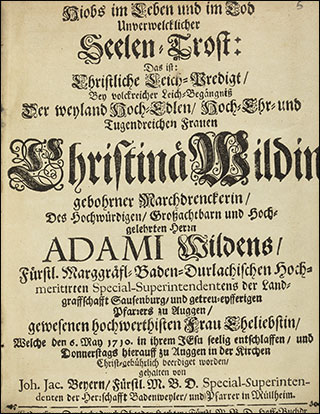 Hiobs im Leben und im Tod
Unverwelcklicher
Seelen-Trost:
Das ist:
Christliche Leich-Predigt/
Bey volckreicher Leich-Begängniß
Der weyland Hoch-Edlen/ Hoch-Ehr- und
Tugendreichen Frauen
Christinä Wildin
gebohrner Marchdrenckerin/
Des Hochwürdigen/ Großachtbarn und Hoch-
gelehrten Herrn
ADAMI Wildens/
Fürstl. Marggräfl-Baden-Durlachischen Hoch-
meritirten Special-Superintendentens der Land-
graffschafft Sausenburg/ und getreu-eyfferigen
Pfarrers zu Auggen/
gewesenen hochwerthisten Frau Eheliebstin/
Welche den 6. May 1730. in ihrem JEsu seelig entschlaffen/ und
Donnerstags hierauff zu Auggen in der Kirchen
Christ-gebührlich beerdiget worden/
gehalten von
Joh. Jac. Beyern/ Fürstl. M. B. D. Special-Superinten-
denten der Herrschafft Badenweyler/ und Pfarrer in Müllheim.